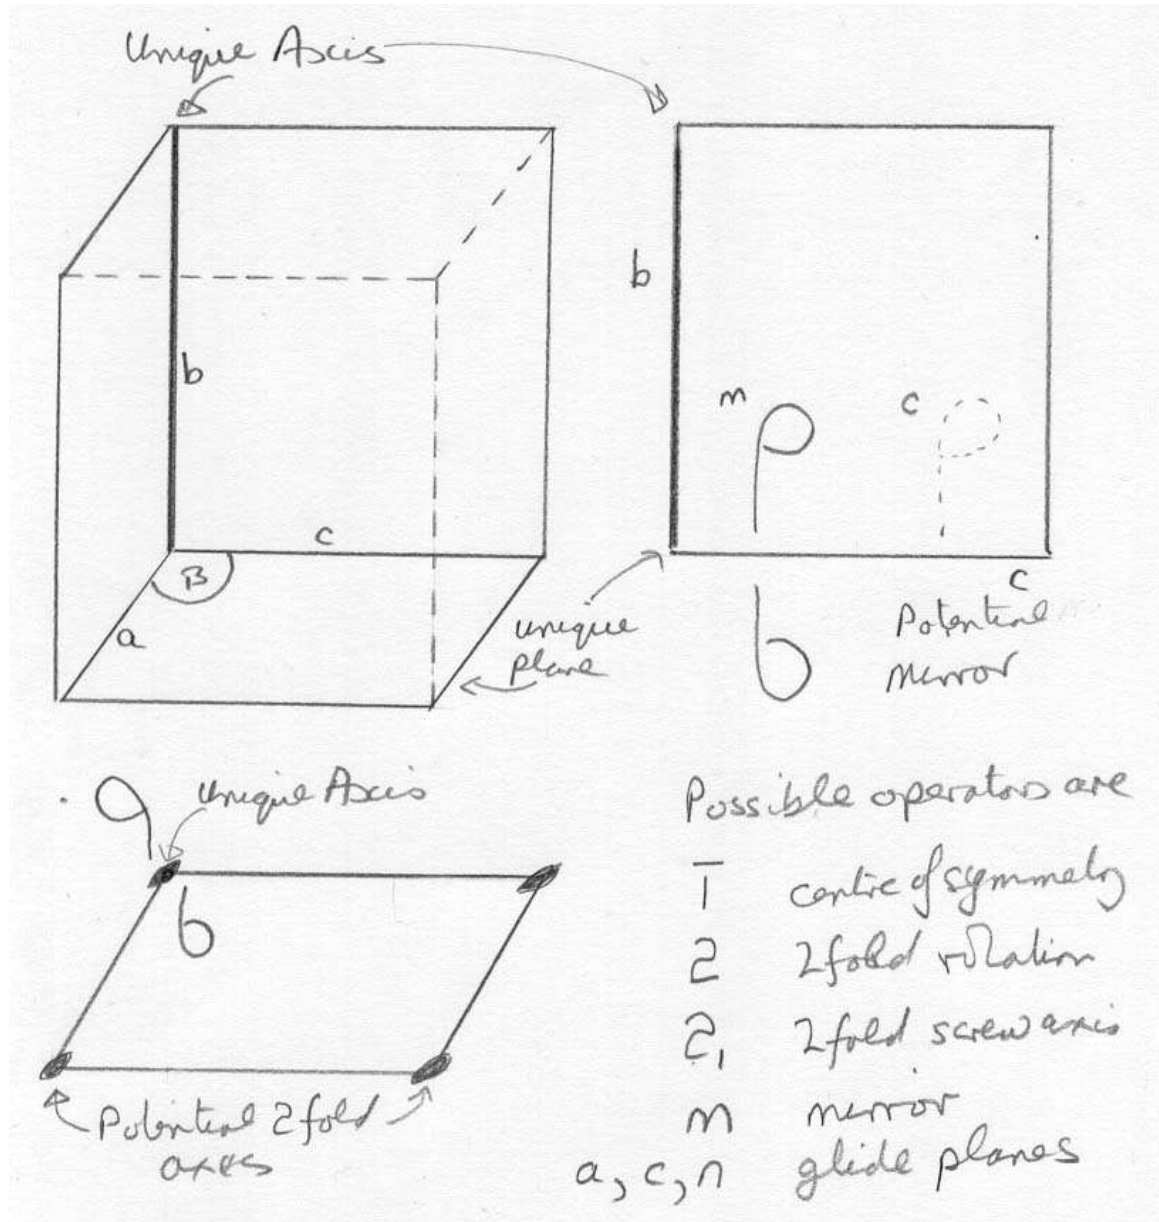 Unique Axis
b
b
m
c
c
B
a
unique
plane
c
Potential
mirror
9
Unique Axis
b
Potential 2 fold
axes
Possible operators are
1̅ centre of symmetry
2 2 fold rotation
2₁ 2 fold screw axis
m mirror
a, c, n glide planes